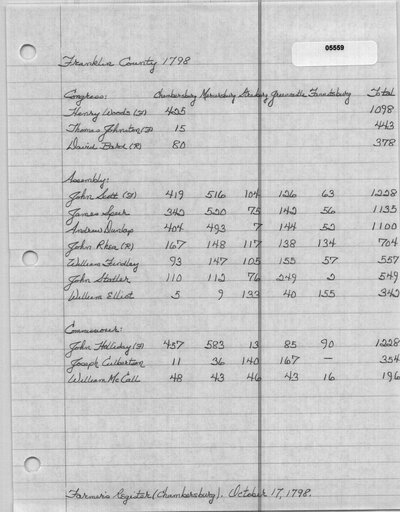 05559
Franklin County 1798
Congress: Chambersburg Mercersburg Strasburg Greencastle Fannettsburg Total
Henry Woods (F) 425 1098
Thomas Johnston (F) 15 443
David Bard (R) 80 378
Assembly:
John Scott (F) 419 516 104 126 63 1228
James Speer 342 520 75 142 56 1135
Andrew Dunlop 404 493 7 144 52 1100
John Rhea (R) 167 148 117 138 134 704
William Findlay 93 147 105 155 57 557
John Statler 110 112 76 249 2 549
William Elliot 5 9 133 40 155 342
Commissioner:
John Holliday (F) 457 583 13 85 90 1228
Joseph Culbertson 11 36 140 167 — 354
William McCall 48 43 46 43 16 196
Farmer's Register (Chambersburg). October 17, 1798.